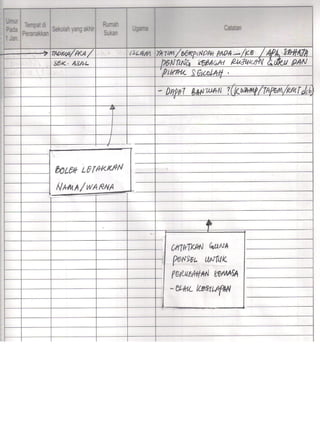 Umur Pada 1 Jan.
Tempat di Peranakkan
Sekolah yang akhir
Rumah Sukan
Ugama
Catatan
TADIKA/PRA/
SEK. ASAL
ISLAM
YATIM/BERPINDAH PADA - /KE / APA SAHAJA
PENTING SEBAGAI RUJUKAN GURU DAN
PIHAK SEKOLAH.
- DAPAT BANTUAN ? (KWAMP/TAPEM/RMT dll)
BOLEH LETAKKAN
NAMA/WARNA
CATATKAN GUNA
PENSEL UNTUK
PERUBAHAN SEMASA
- ELAK KESILAPAN